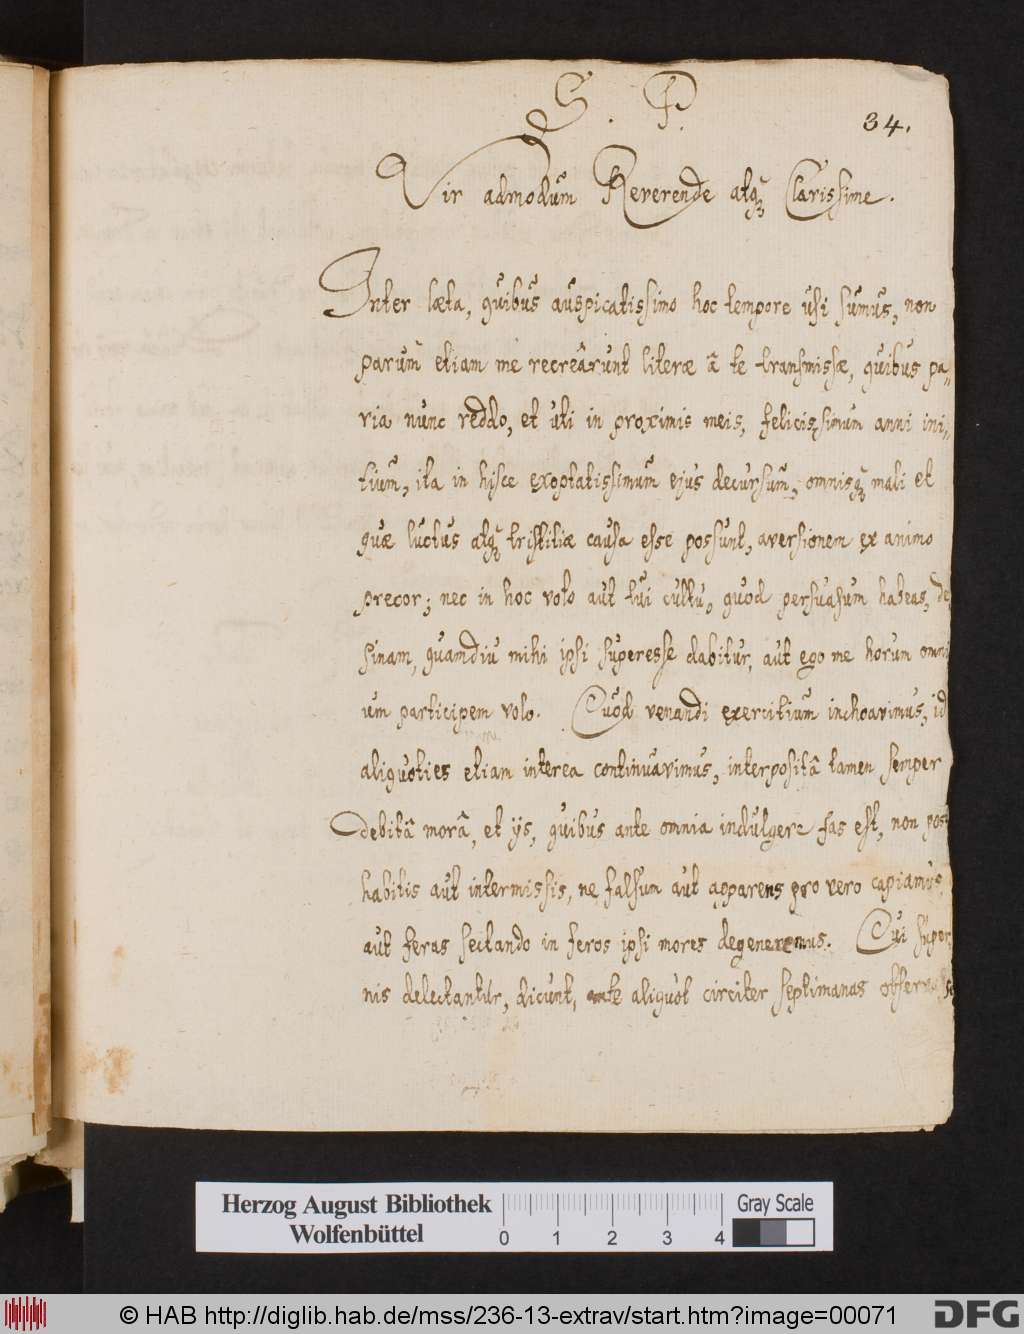 S. P.
34.
Vir admodum Reverende atq̃ Clarissime.
Inter læta, quibus auspicatissimo hoc tempore usi sumus, non
parum etiam me recreârunt literæ â te transmissæ, quibus pa„
ria nunc reddo, et uti in proximis meis, felicissimum anni ini„
tium, ita in hisce exoptatissimum ejus decursum, omnisq̃ mali et
quæ luctus atq̃ tristitiæ causa esse possunt, aversionem ex animo
precor; nec in hoc voto aut tui cultu, quod persuasum habeas, de
sinam, quamdiu mihi ipsi superesse dabitur, aut ego me horum omni
um participem volo. Quod venandi exercitium inchoavimus, id
aliquoties etiam interea continuavimus, interpositâ tamen semper
debitâ morâ, et ijs, quibus ante omnia indulgere fas est, non post
habitis aut intermissis, ne falsum aut apparens pro vero capiamus,
aut feras sectando in feros ipsi mores degeneremus. Qui super
nis delectantur, dicunt, ante aliquot circiter septimanas
Herzog August Bibliothek
Wolfenbüttel
0 1 2 3 4
Gray Scale
© HAB http://diglib.hab.de/mss/236-13-extrav/start.htm?image=00071
DFG